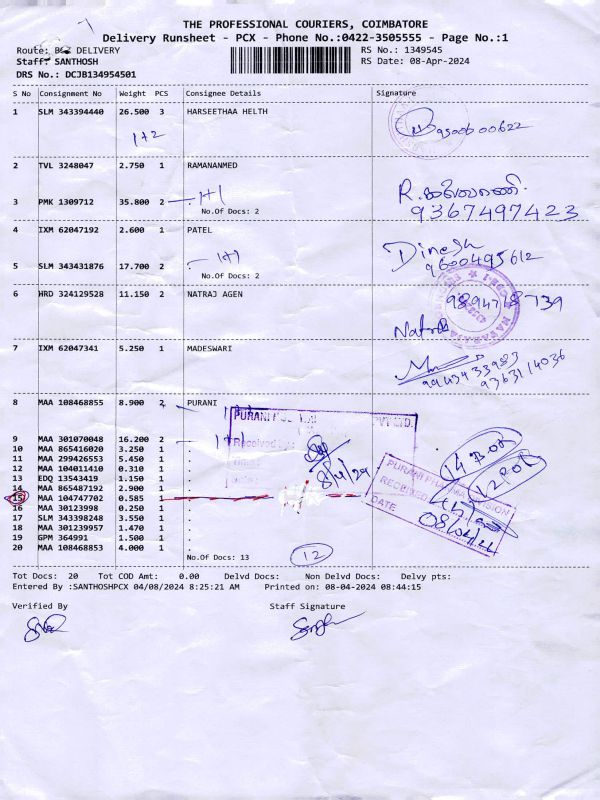 THE PROFESSIONAL COURIERS, COIMBATORE
Delivery Runsheet - PCX - Phone No.:0422-3505555 - Page No.:1
Route: DELIVERY
Staff: SANTHOSH
DRS No.: DCJB134954501
RS No.: 1349545
RS Date: 08-Apr-2024
S No Consignment No Weight PCS Consignee Details Signature
1 SLM 343394440 26.500 3 HARSEETHAA HELTH
1+2
9500600622
2 TVL 3248047 2.750 1 RAMANANMED
3 PMK 1309712 35.800 2 . 1+1
No.Of Docs: 2
9367497423
4 IXM 62047192 2.600 1 PATEL
Dinesh
9600495612
5 SLM 343431876 17.700 2 . 1+1
No.Of Docs: 2
6 HRD 324129528 11.150 2 NATRAJ AGEN
9894718739
7 IXM 62047341 5.250 1 MADESWARI
9943433983
9363114036
8 MAA 108468855 8.900 2 PURANI
9 MAA 301070048 16.200 2 . 1+1
10 MAA 865416020 3.250 1 .
11 MAA 299426553 5.450 1 .
12 MAA 104011410 0.310 1 .
13 EDQ 13543419 1.150 1 .
14 MAA 865487192 2.900 1 .
15 MAA 104747702 0.585 1
16 MAA 30123998 0.250 1 .
17 SLM 343398248 3.550 1 .
18 MAA 301239957 1.470 1 .
19 GPM 364991 1.500 1 .
20 MAA 108468853 4.000 1 .
No.Of Docs: 13
12
8/4/24
14 Box
12 Box
PURANI PHARMA DIVISION
RECEIVED
DATE
08/04/24
Tot Docs: 20 Tot COD Amt: 0.00 Delvd Docs: Non Delvd Docs: Delvy pts:
Entered By :SANTHOSHPCX 04/08/2024 8:25:21 AM Printed on: 08-04-2024 08:44:15
Verified By Staff Signature